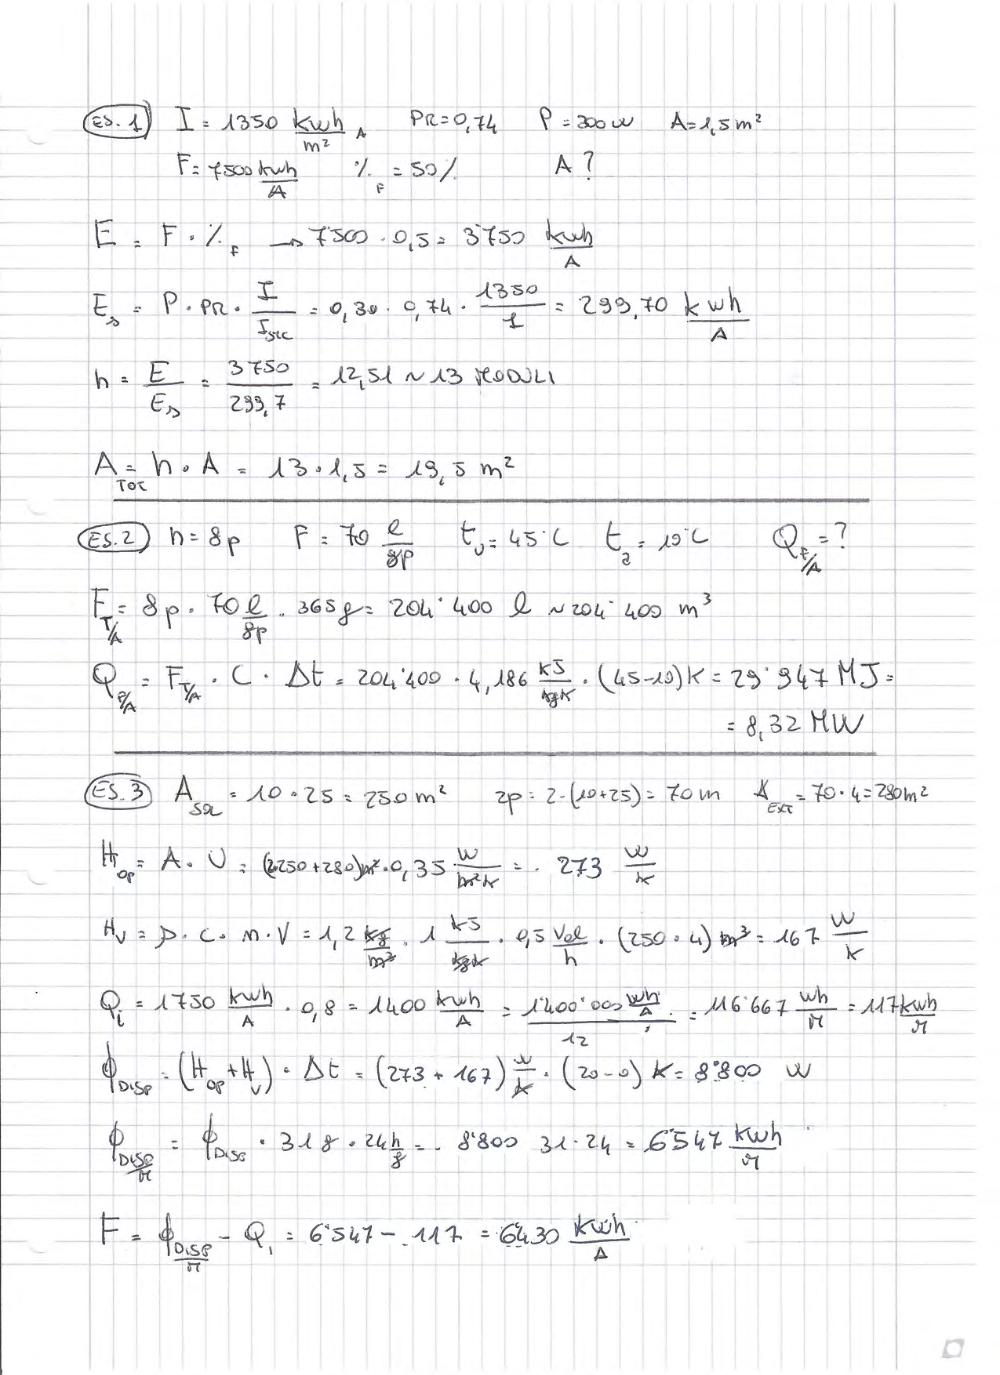 ES.1 I = 1350 kWh/m² A PR=0,74 P=300W A=1,5m²
F=7500 kWh/A %F = 50% A?
E = F · %F → 7500 · 0,5 = 3750 kWh/A
Es = P · PR · I/Istc = 0,30 · 0,74 · 1350/1 = 299,70 kWh/A
n = E/Es = 3750/299,7 = 12,51 ~ 13 MODULI
A TOT = n · A = 13 · 1,5 = 19,5 m²
ES.2 n = 8p F = 70 l/gp tu = 45°C ta = 10°C QF/A = ?
FT/A = 8p · 70 l/gp · 365g = 204'400 l ~ 204'400 m³
QF/A = FT/A · C · Δt = 204'400 · 4,186 kJ/kgK · (45-10)K = 29'947 MJ =
= 8,32 MW
ES.3 ASOL = 10 · 25 = 250 m² 2p = 2·(10+25) = 70m AEST = 70·4=280m²
Hop = A · U = (2·250+280)m² · 0,35 W/m²K = 273 W/K
HV = ρ · C · n · V = 1,2 kg/m³ · 1 kJ/kgK · 0,5 Vol/h · (250 · 4) m³ = 167 W/K
Qi = 1750 kWh/A · 0,8 = 1400 kWh/A = 1'400'000 Wh/A / 12 = 116'667 Wh/M = 117 kWh/M
ϕDISP = (Hop + HV) · Δt = (273 + 167) W/K · (20-0) K = 8'800 W
ϕDISP/M = ϕDISP · 31g · 24 h/g = 8'800 31·24 = 6'547 kWh/M
F = ϕDISP/M - Qi = 6'547 - 117 = 6430 kWh/A